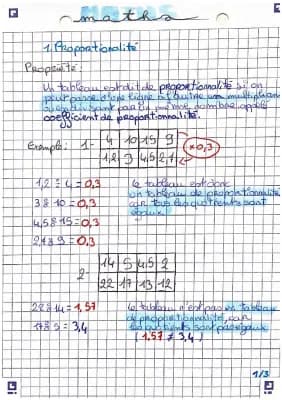 maths
1. Proportionalité
Propriété:
Un tableau est dit de proportionnalité si on
peut passer d'une ligne à l'autre en multipliant
par un même nombre appelé
coefficient de proportionnalité.
Exemple: 1- 4 10 15 9
1,2 3 4,5 2,7 ×0,3
1,2 ÷ 4 = 0,3 Le tableau est donc
3 ÷ 10 = 0,3 un tableau de proportionnalité
4,5 ÷ 15 = 0,3 car tous les quotients sont
2,7 ÷ 9 = 0,3 égaux.
2- 14 5 4,5 2
22 17 13 12
22 ÷ 14 = 1,57 Le tableau n'est pas un tableau
17 ÷ 5 = 3,4 de proportionnalité, car
les quotients sont pas égaux
(1,57 ≠ 3,4)
1/3